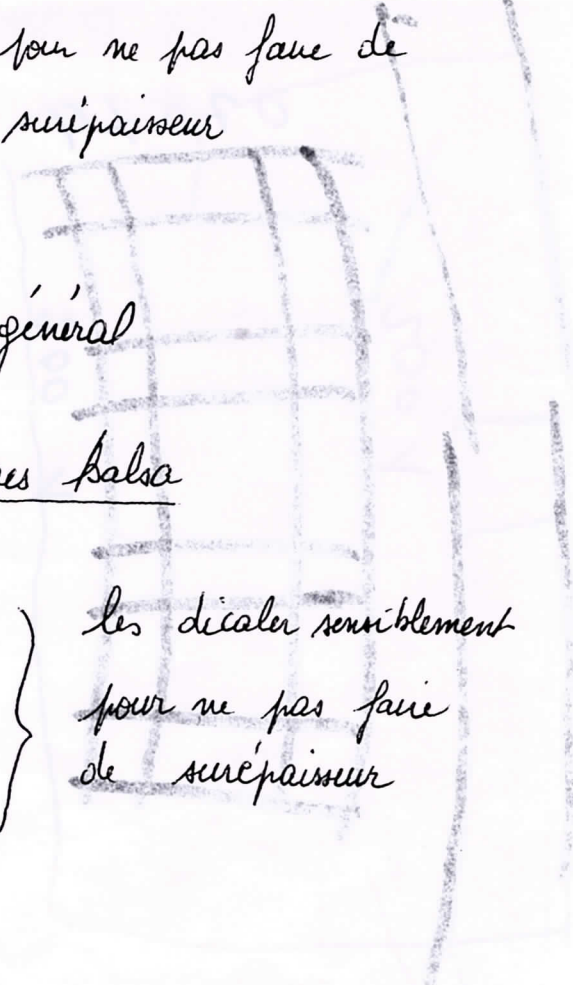 pour ne pas faire de
surépaisseur
général
Balsa
les décaler sensiblement
pour ne pas faire
de surépaisseur